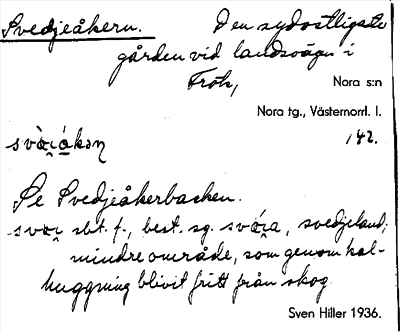 Svedjeåkern. Den sydostligaste
gården vid landsvägen i
Frök,
Nora s:n
Nora tg., Västernorrl. l.
142.
Se Svedjeåkerbacken.
sbt. f., best. sg. svedjeland;
mindre område, som genom kal-
huggning blivit fritt från skog.
Sven Hiller 1936.